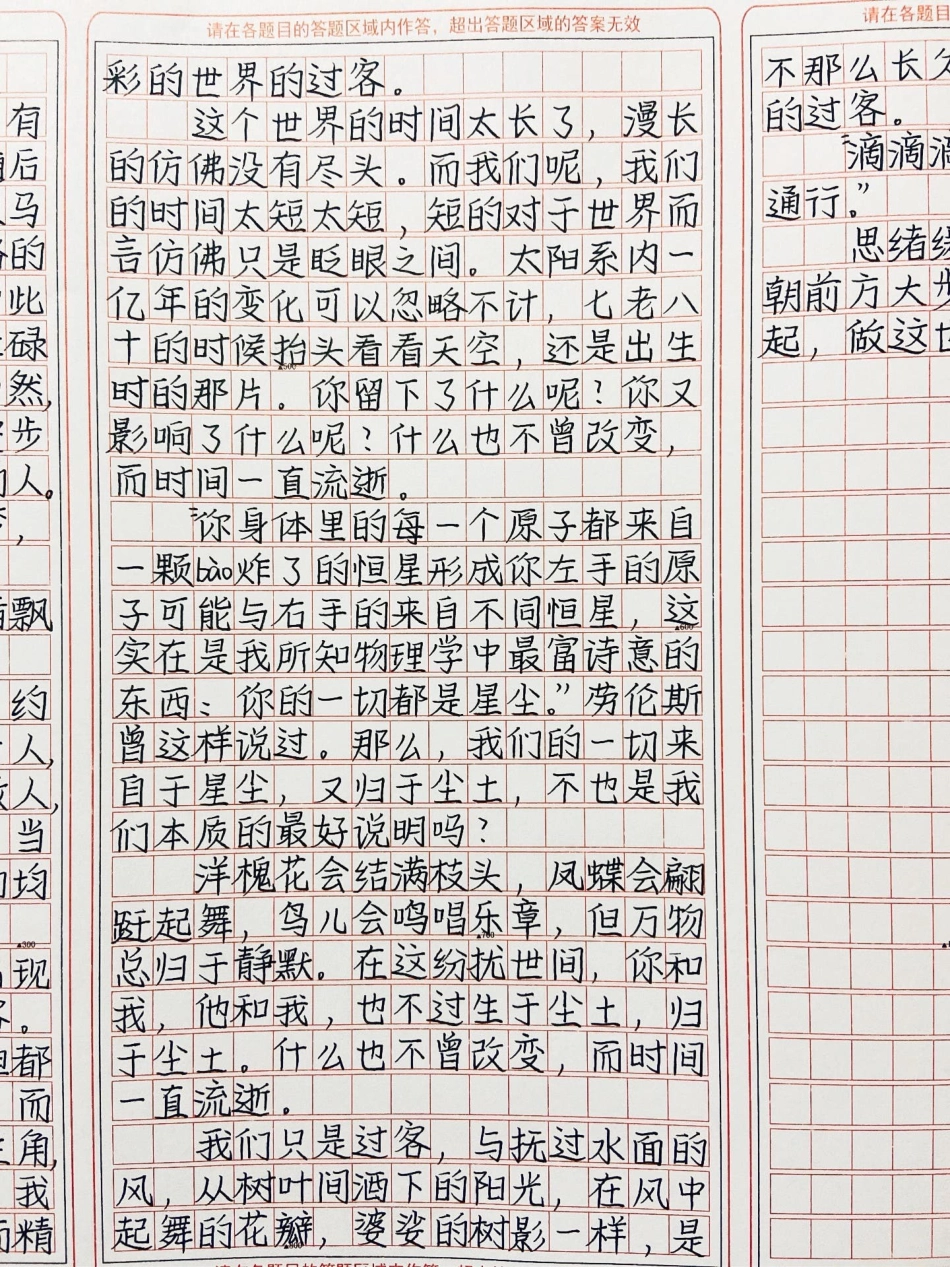 请在各题目的答题区域内作答，超出答题区域的答案无效
彩的世界的过客。
这个世界的时间太长了，漫长
的仿佛没有尽头。而我们呢，我们
的时间太短太短，短的对于世界而
言仿佛只是眨眼之间。太阳系内一
亿年的变化可以忽略不计，七老八
十的时候抬头看看天空，还是出生
时的那片。你留下了什么呢？你又
影响了什么呢？什么也不曾改变，
而时间一直流逝。
“你身体里的每一个原子都来自
一颗bào炸了的恒星形成你左手的原
子可能与右手的来自不同恒星，这
实在是我所知物理学中最富诗意的
东西：你的一切都是星尘。”劳伦斯
曾这样说过。那么，我们的一切来
自于星尘，又归于尘土，不也是我
们本质的最好说明吗？
洋槐花会结满枝头，凤蝶会翩
跹起舞，鸟儿会鸣唱乐章，但万物
总归于静默。在这纷扰世间，你和
我，他和我，也不过生于尘土，归
于尘土。什么也不曾改变，而时间
一直流逝。
我们只是过客，与抚过水面的
风，从树叶间洒下的阳光，在风中
起舞的花瓣，婆娑的树影一样，是
有
后
马
的
此
碌
然，
步
人。
，
飘
约
人，
人，
当
均
▲300
现
。
都
而
角，
我
精
请在各题目
不那么长
的过客。
“滴滴
通行。”
思绪
朝前方大
起，做这